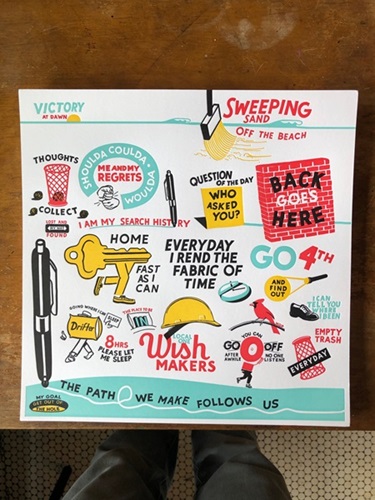 VICTORY
AT DAWN
SWEEPING
SAND
OFF THE BEACH
THOUGHTS
COLLECT
SHOULDA COULDA WOULDA
ME AND MY
REGRETS
QUESTION
OF THE DAY
WHO
ASKED
YOU?
BACK
GOES
HERE
LOST AND
FOUND
I AM MY SEARCH HISTORY
HOME
FAST
AS I
CAN
EVERYDAY
I REND THE
FABRIC OF
TIME
GO 4TH
AND
FIND
OUT
I CAN
TELL YOU
WHERE
BEEN
GOING WHERE I CAN SLEEP
Drifter
THE PLACE TO BE
8HRS
PLEASE LET
ME SLEEP
LOCAL
Wish
MAKERS
YOU CAN
GO OFF
AFTER
AWHILE
NO ONE
LISTENS
EMPTY
TRASH
EVERYDAY
THE PATH WE MAKE FOLLOWS US
MY GOAL
GET OUT OF
THE HOLE